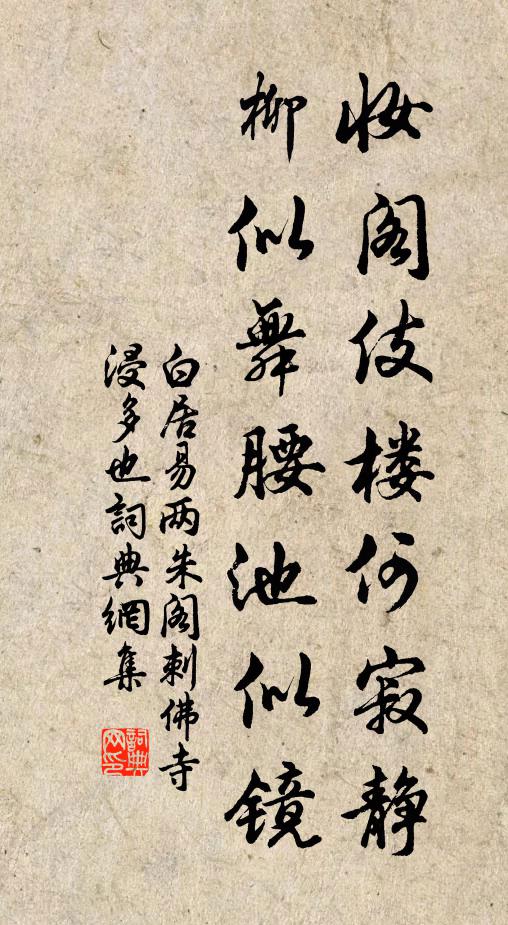 妆阁伎楼何寂静
柳似舞腰池似镜
白居易两朱阁刺佛寺
浸多也詞典網集
詞典网印